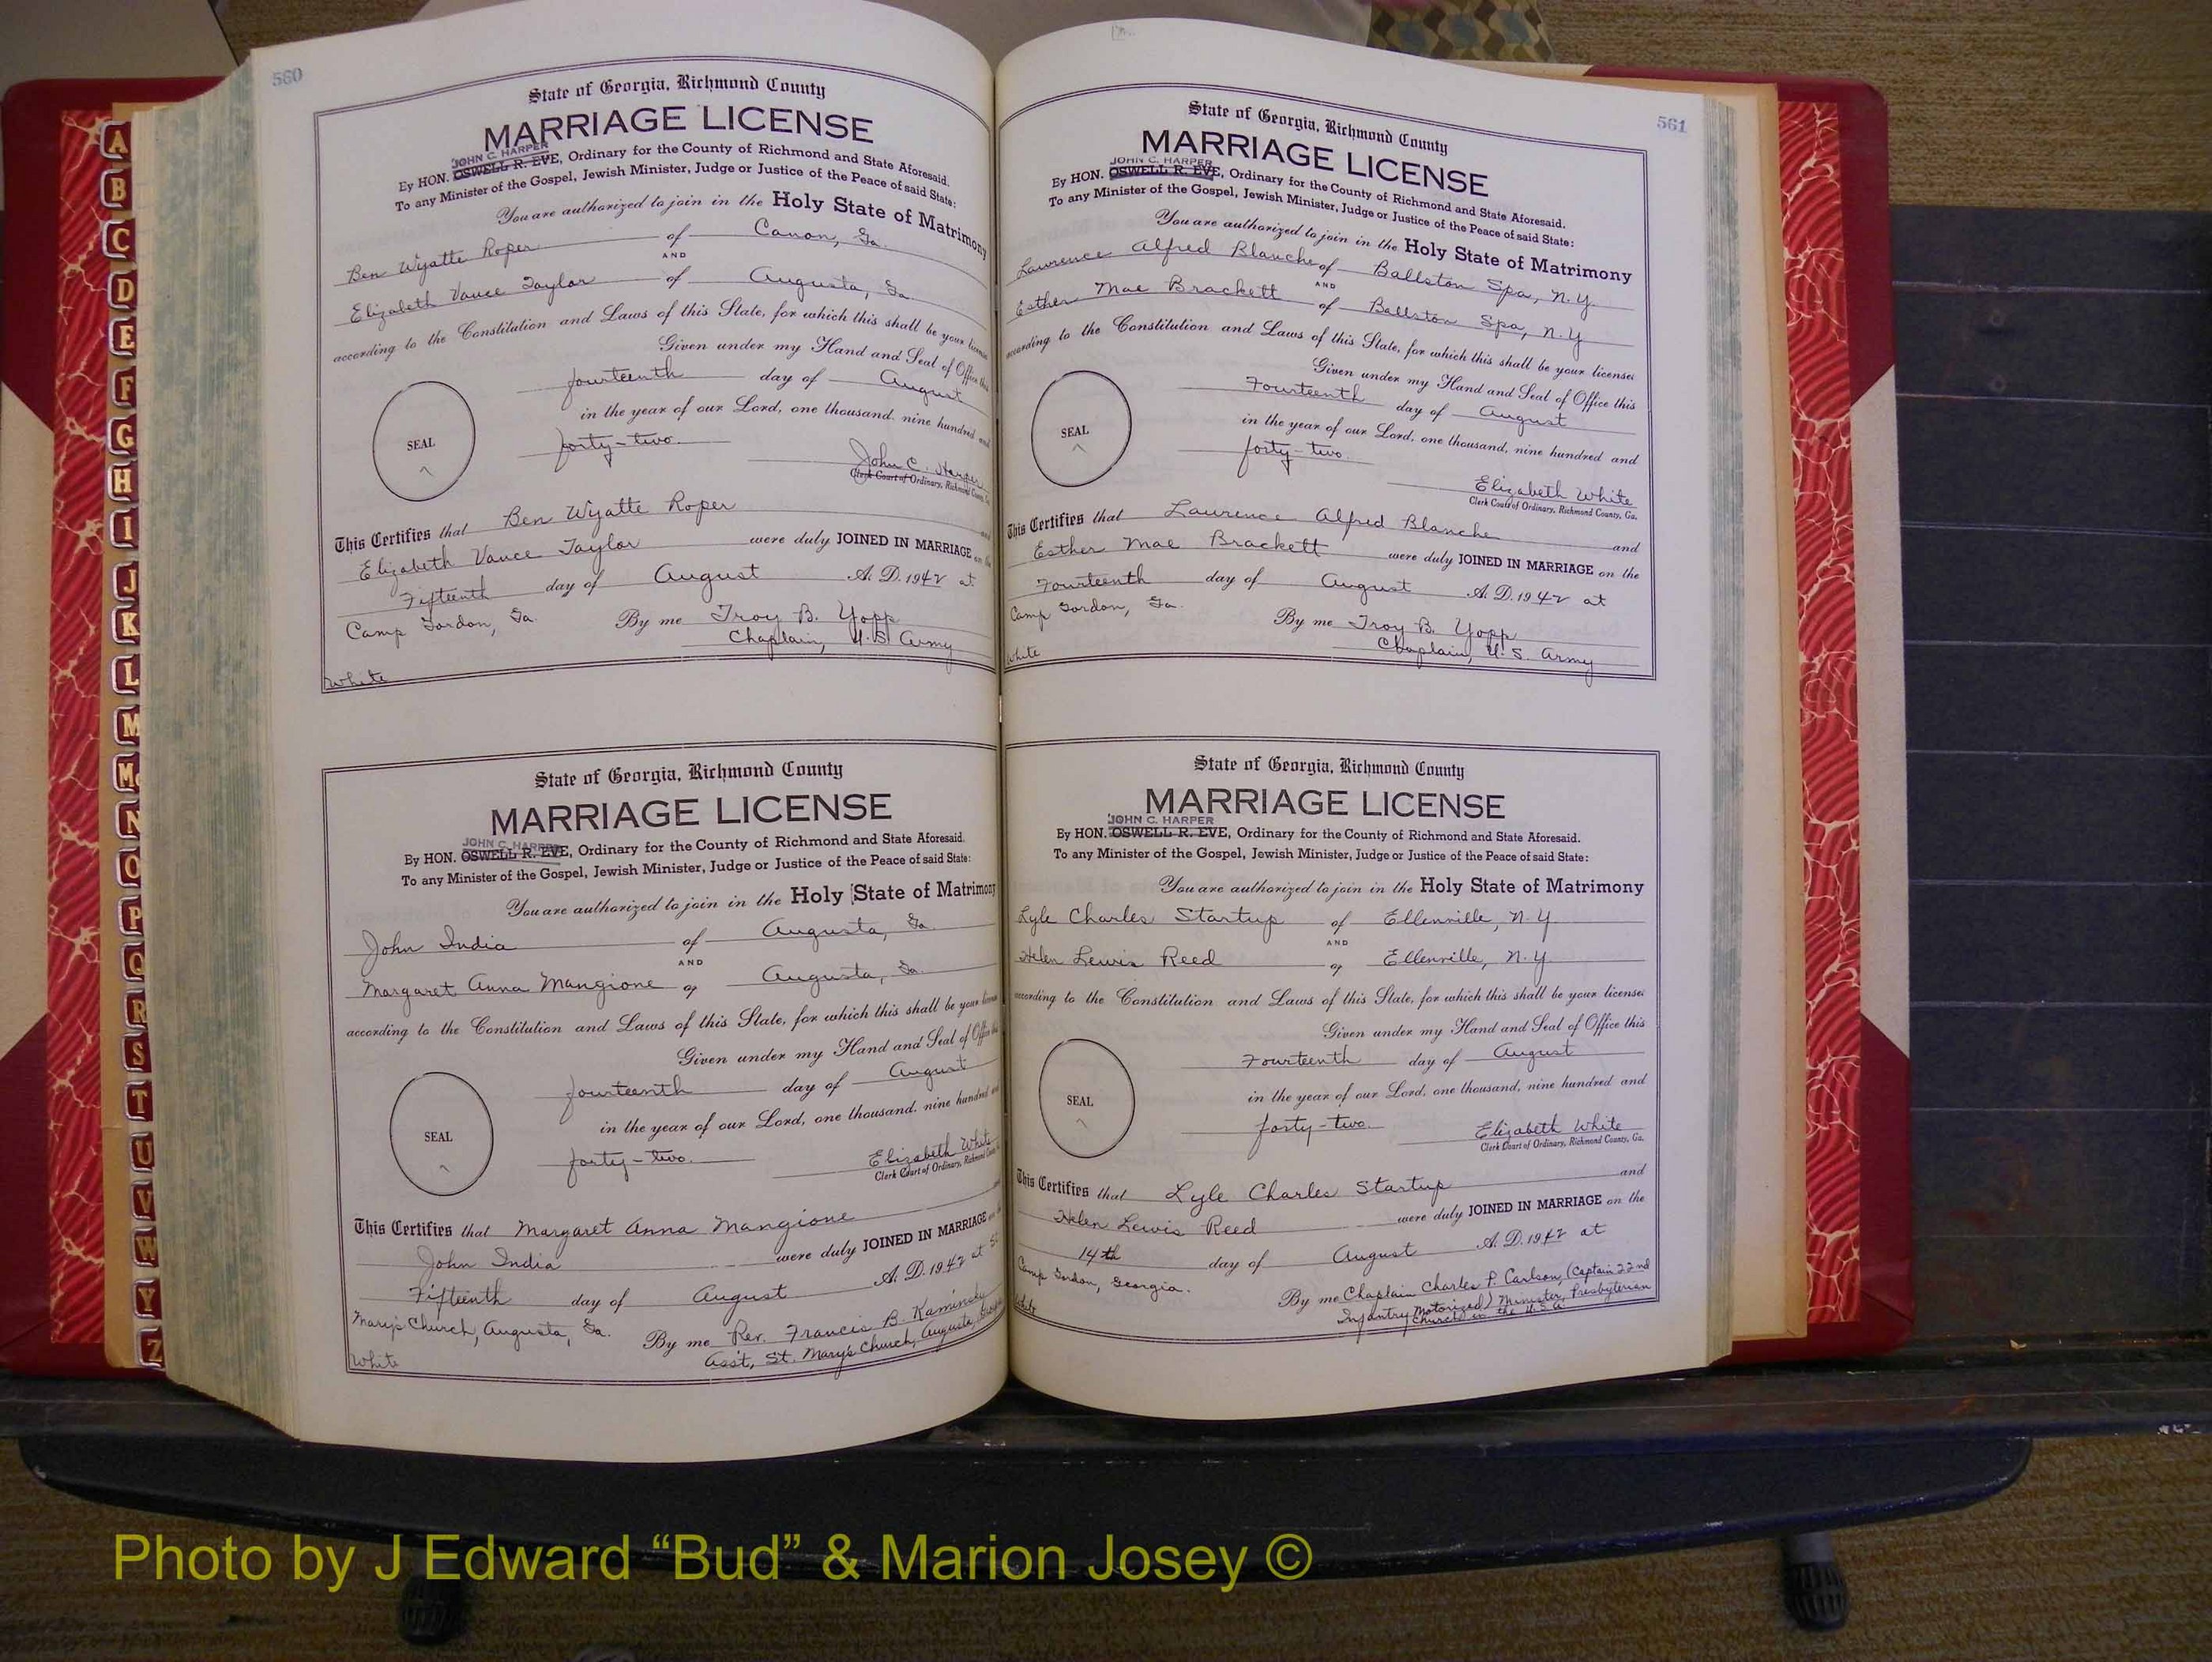 560
State of Georgia, Richmond County
MARRIAGE LICENSE
JOHN C. HARPER
By HON. OSWELL R. EVE, Ordinary for the County of Richmond and State Aforesaid.
To any Minister of the Gospel, Jewish Minister, Judge or Justice of the Peace of said State:
You are authorized to join in the Holy State of Matrimony
Ben Wyatte Roper of Canon, Ga.
AND
Elizabeth Vance Taylor of Augusta, Ga.
according to the Constitution and Laws of this State, for which this shall be your license
Given under my Hand and Seal of Office this
fourteenth day of August
in the year of our Lord, one thousand, nine hundred and
forty-two.
SEAL
John C. Harper
Clerk Court of Ordinary, Richmond County, Ga.
This Certifies that Ben Wyatte Roper and
Elizabeth Vance Taylor were duly JOINED IN MARRIAGE on the
Fifteenth day of August A. D. 1942 at
Camp Gordon, Ga. By me Troy B. Yopp
Chaplain, U.S. Army
White
State of Georgia, Richmond County
MARRIAGE LICENSE
JOHN C. HARPER
By HON. OSWELL R. EVE, Ordinary for the County of Richmond and State Aforesaid.
To any Minister of the Gospel, Jewish Minister, Judge or Justice of the Peace of said State:
You are authorized to join in the Holy State of Matrimony
John India of Augusta, Ga.
AND
Margaret Anna Mangione of Augusta, Ga.
according to the Constitution and Laws of this State, for which this shall be your license
Given under my Hand and Seal of Office this
fourteenth day of August
in the year of our Lord, one thousand, nine hundred and
forty-two.
SEAL
Elizabeth White
Clerk Court of Ordinary, Richmond County
This Certifies that Margaret Anna Mangione and
John India were duly JOINED IN MARRIAGE on the
Fifteenth day of August A. D. 1942 at St.
Mary's Church, Augusta, Ga. By me Rev. Francis B. Kaminsky
Ass't, St. Mary's Church, Augusta, Georgia
White
561
State of Georgia, Richmond County
MARRIAGE LICENSE
JOHN C. HARPER
By HON. OSWELL R. EVE, Ordinary for the County of Richmond and State Aforesaid.
To any Minister of the Gospel, Jewish Minister, Judge or Justice of the Peace of said State:
You are authorized to join in the Holy State of Matrimony
Lawrence Alfred Blanche of Ballston Spa, N.Y.
AND
Esther Mae Brackett of Ballston Spa, N.Y
according to the Constitution and Laws of this State, for which this shall be your license:
Given under my Hand and Seal of Office this
Fourteenth day of August
in the year of our Lord, one thousand, nine hundred and
forty-two.
SEAL
Elizabeth White
Clerk Court of Ordinary, Richmond County, Ga.
This Certifies that Lawrence Alfred Blanche and
Esther Mae Brackett were duly JOINED IN MARRIAGE on the
Fourteenth day of August A. D. 1942 at
Camp Gordon, Ga. By me Troy B. Yopp
Chaplain, U.S. Army
White
State of Georgia, Richmond County
MARRIAGE LICENSE
JOHN C. HARPER
By HON. OSWELL R. EVE, Ordinary for the County of Richmond and State Aforesaid.
To any Minister of the Gospel, Jewish Minister, Judge or Justice of the Peace of said State:
You are authorized to join in the Holy State of Matrimony
Lyle Charles Startup of Ellenville, N.Y.
AND
Helen Lewis Reed of Ellenville, N.Y
according to the Constitution and Laws of this State, for which this shall be your license:
Given under my Hand and Seal of Office this
Fourteenth day of August
in the year of our Lord, one thousand, nine hundred and
forty-two.
SEAL
Elizabeth White
Clerk Court of Ordinary, Richmond County, Ga.
This Certifies that Lyle Charles Startup and
Helen Lewis Reed were duly JOINED IN MARRIAGE on the
14th day of August A. D. 1942 at
Camp Gordon, Georgia. By me Chaplain Charles P. Carlson, (Captain 22nd
Infantry Motorized) Minister, Presbyterian
Church in the U.S.A.
White
A
B
C
D
E
F
G
H
I
J
K
L
M
Mc
N
O
P
Q
R
S
T
U
V
W
Y
Z
Photo by J Edward “Bud” & Marion Josey ©